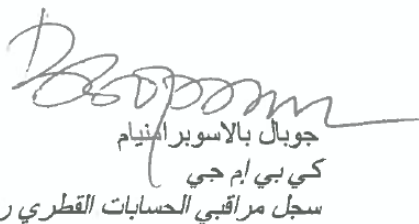 جوبال بالاسوبرامنيام
كي بي إم جي
سجل مراقبي الحسابات القطري ر